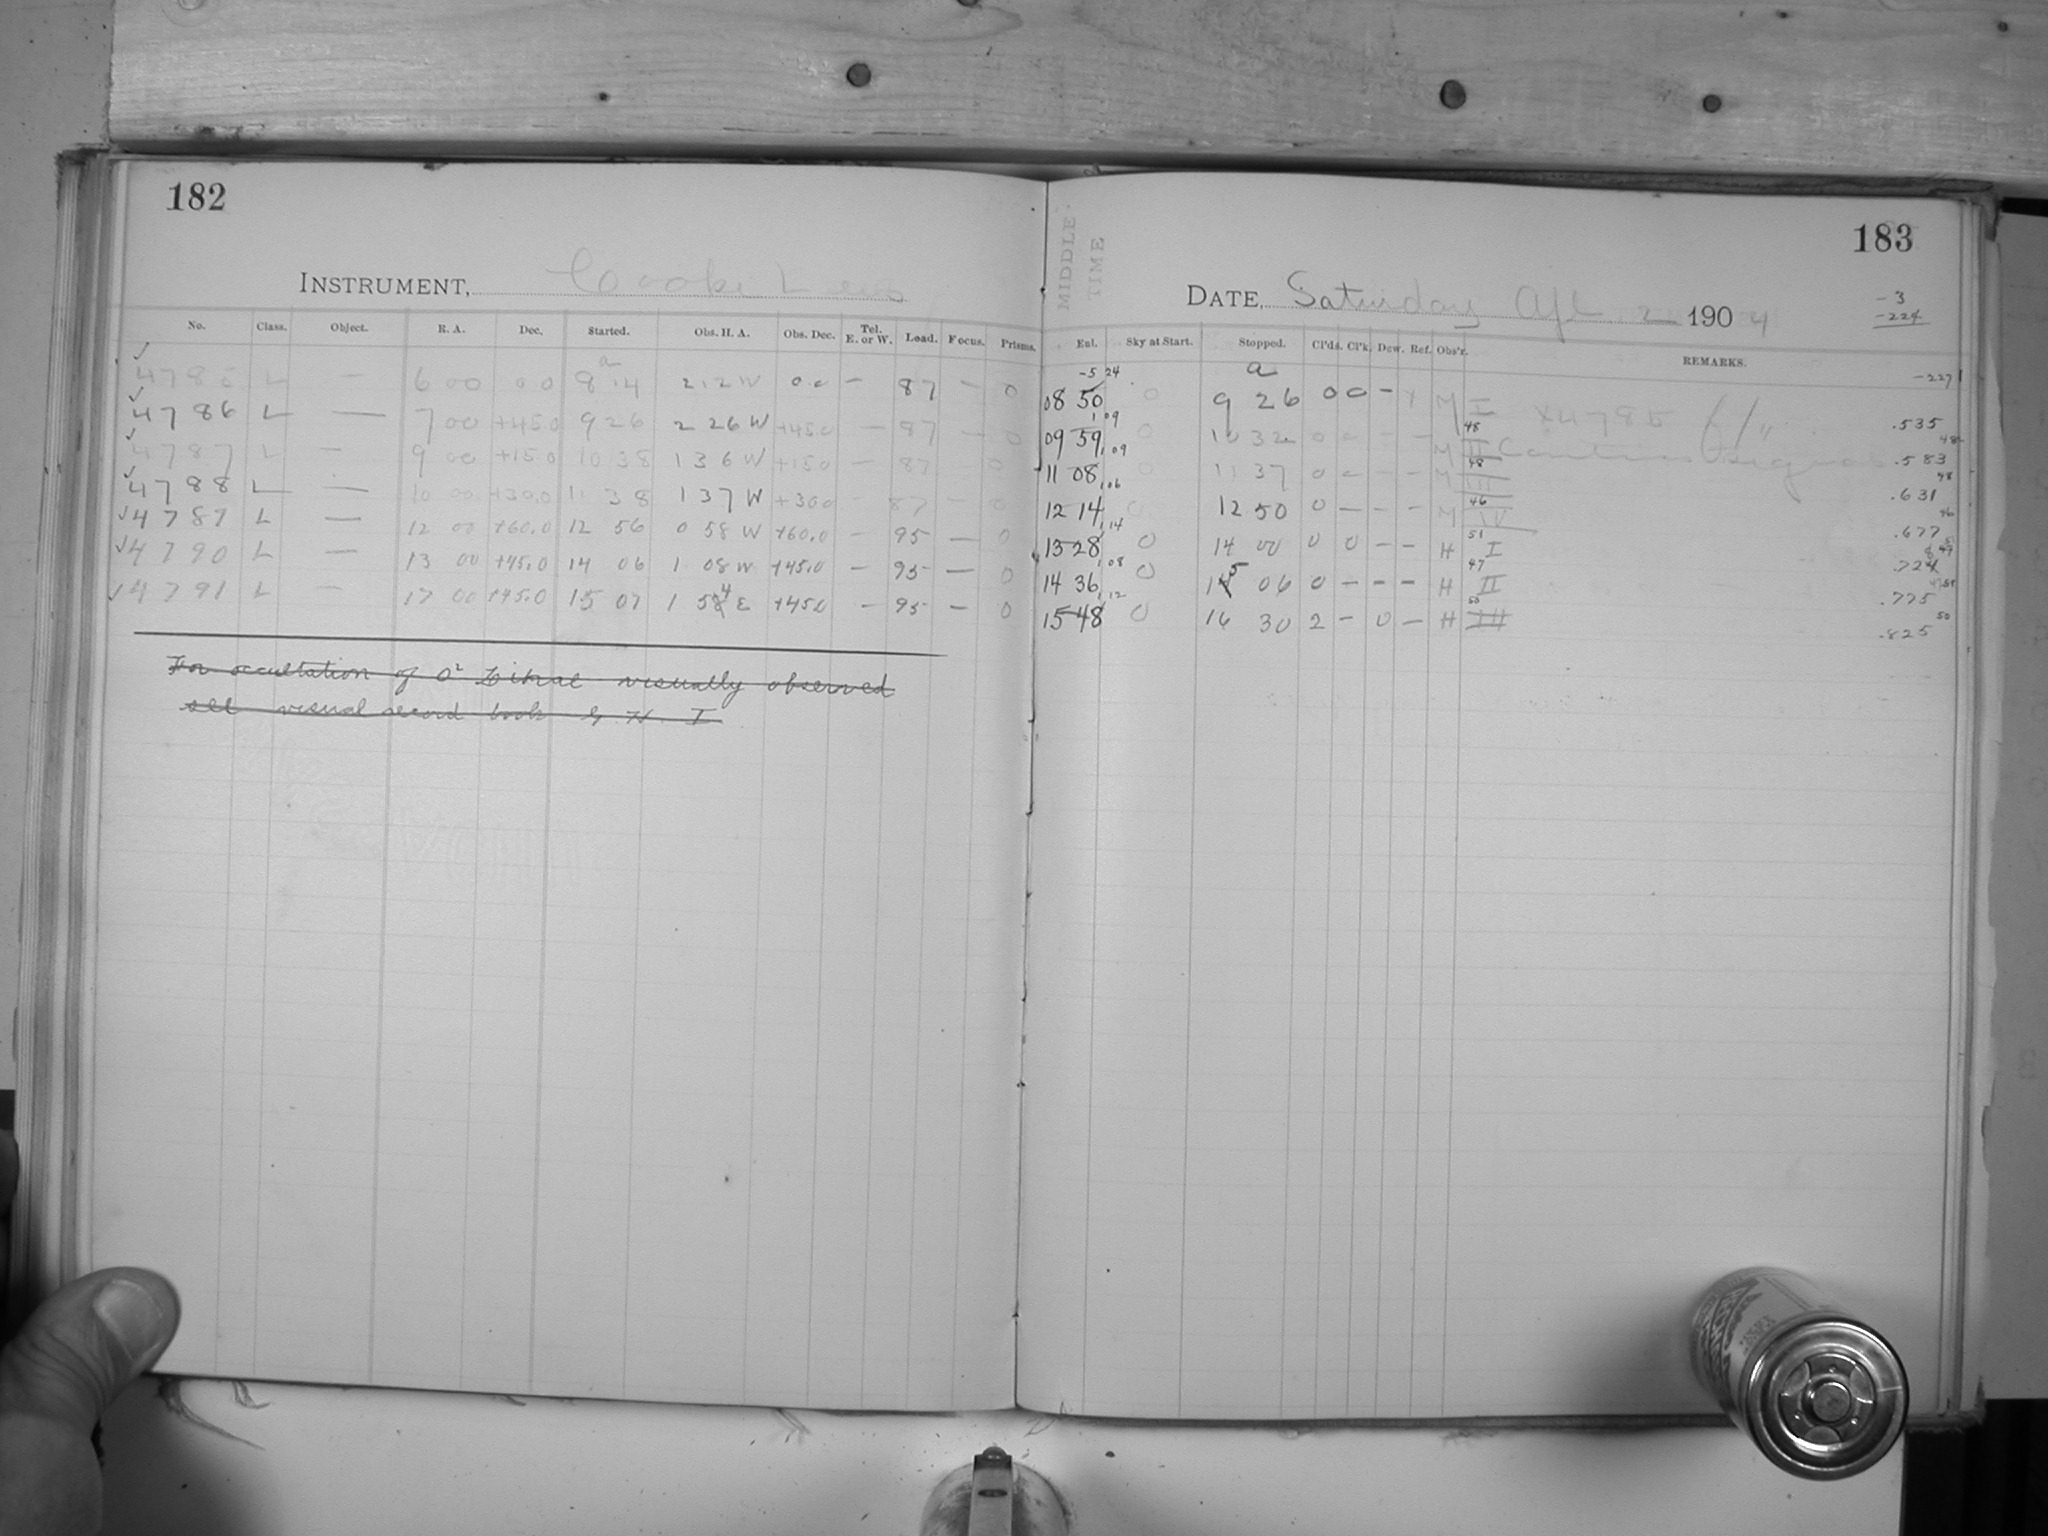 182
INSTRUMENT, Cooke Lens
No. Class. Object. R. A. Dec. Started. Obs. H. A. Obs. Dec. Tel. E. or W. Load. Focus. Prisms.
a
4785 L — 6 00 0 0 8 14 2 12 W 0.0 — 87 — 0
4786 L — 7 00 +45.0 9 26 2 26 W +45.0 — 87 — 0
4787 L — 9 00 +15.0 10 38 1 36 W +15.0 — 87 — 0
4788 L — 10 00 +30.0 11 38 1 37 W +30.0 — 87 — 0
4789 L — 12 00 +60.0 12 56 0 58 W +60.0 — 95 — 0
4790 L — 13 00 +45.0 14 06 1 08 W +45.0 — 95 — 0
4791 L — 17 00 +45.0 15 07 1 54 E +45.0 — 95 — 0
For occultation of O² visually observed
see visual record book
183
MIDDLE TIME
DATE, Saturday Apl 2 1904
-3
-224
Enl. Sky at Start. Stopped. Cl'ds. Cl'k. Dew. Ref. Obs'r. REMARKS.
-5 24 a -227
08 50 0 9 26 0 0 - M I X4785 .535
09 59 0 10 32 0 M II .583
11 08 0 11 37 0 M III .631
12 14 0 12 50 0 — - - M IV .677
13 28 0 14 00 0 0 — — H I .724
14 36 0 15 06 0 - - - H II .775
15 48 0 16 30 2 - 0 — H III .825